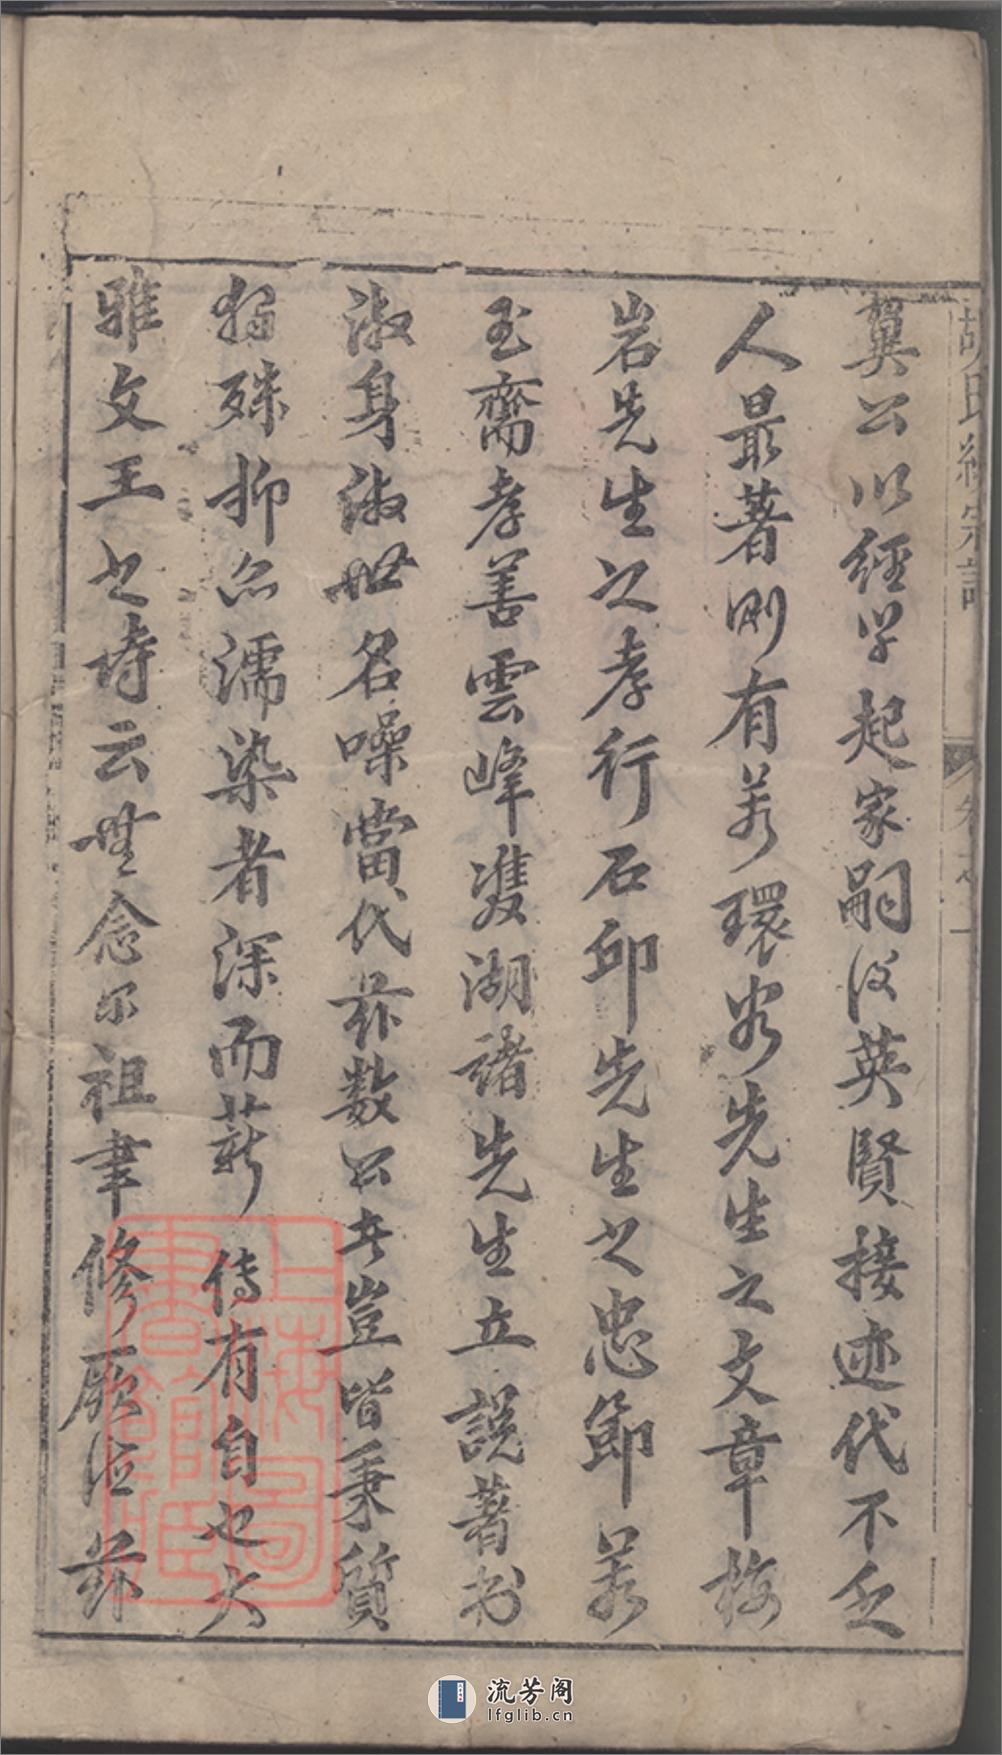 胡氏統宗譜
卷之一
翼公以經学起家嗣后英賢接迹代不乏
人最著则有若環谷先生之文章梅
岩先生之孝行石邱先生之忠節若
玉齋孝善雲峰双湖諸先生立說著书
淑身淑世名噪當代兹数公者豈皆秉質
獨殊抑亦濡染者深而薪傳有自也大
雅文王之詩云無念尔祖聿修厥德兹
上海圖書館藏
流芳阁
lfglib.cn